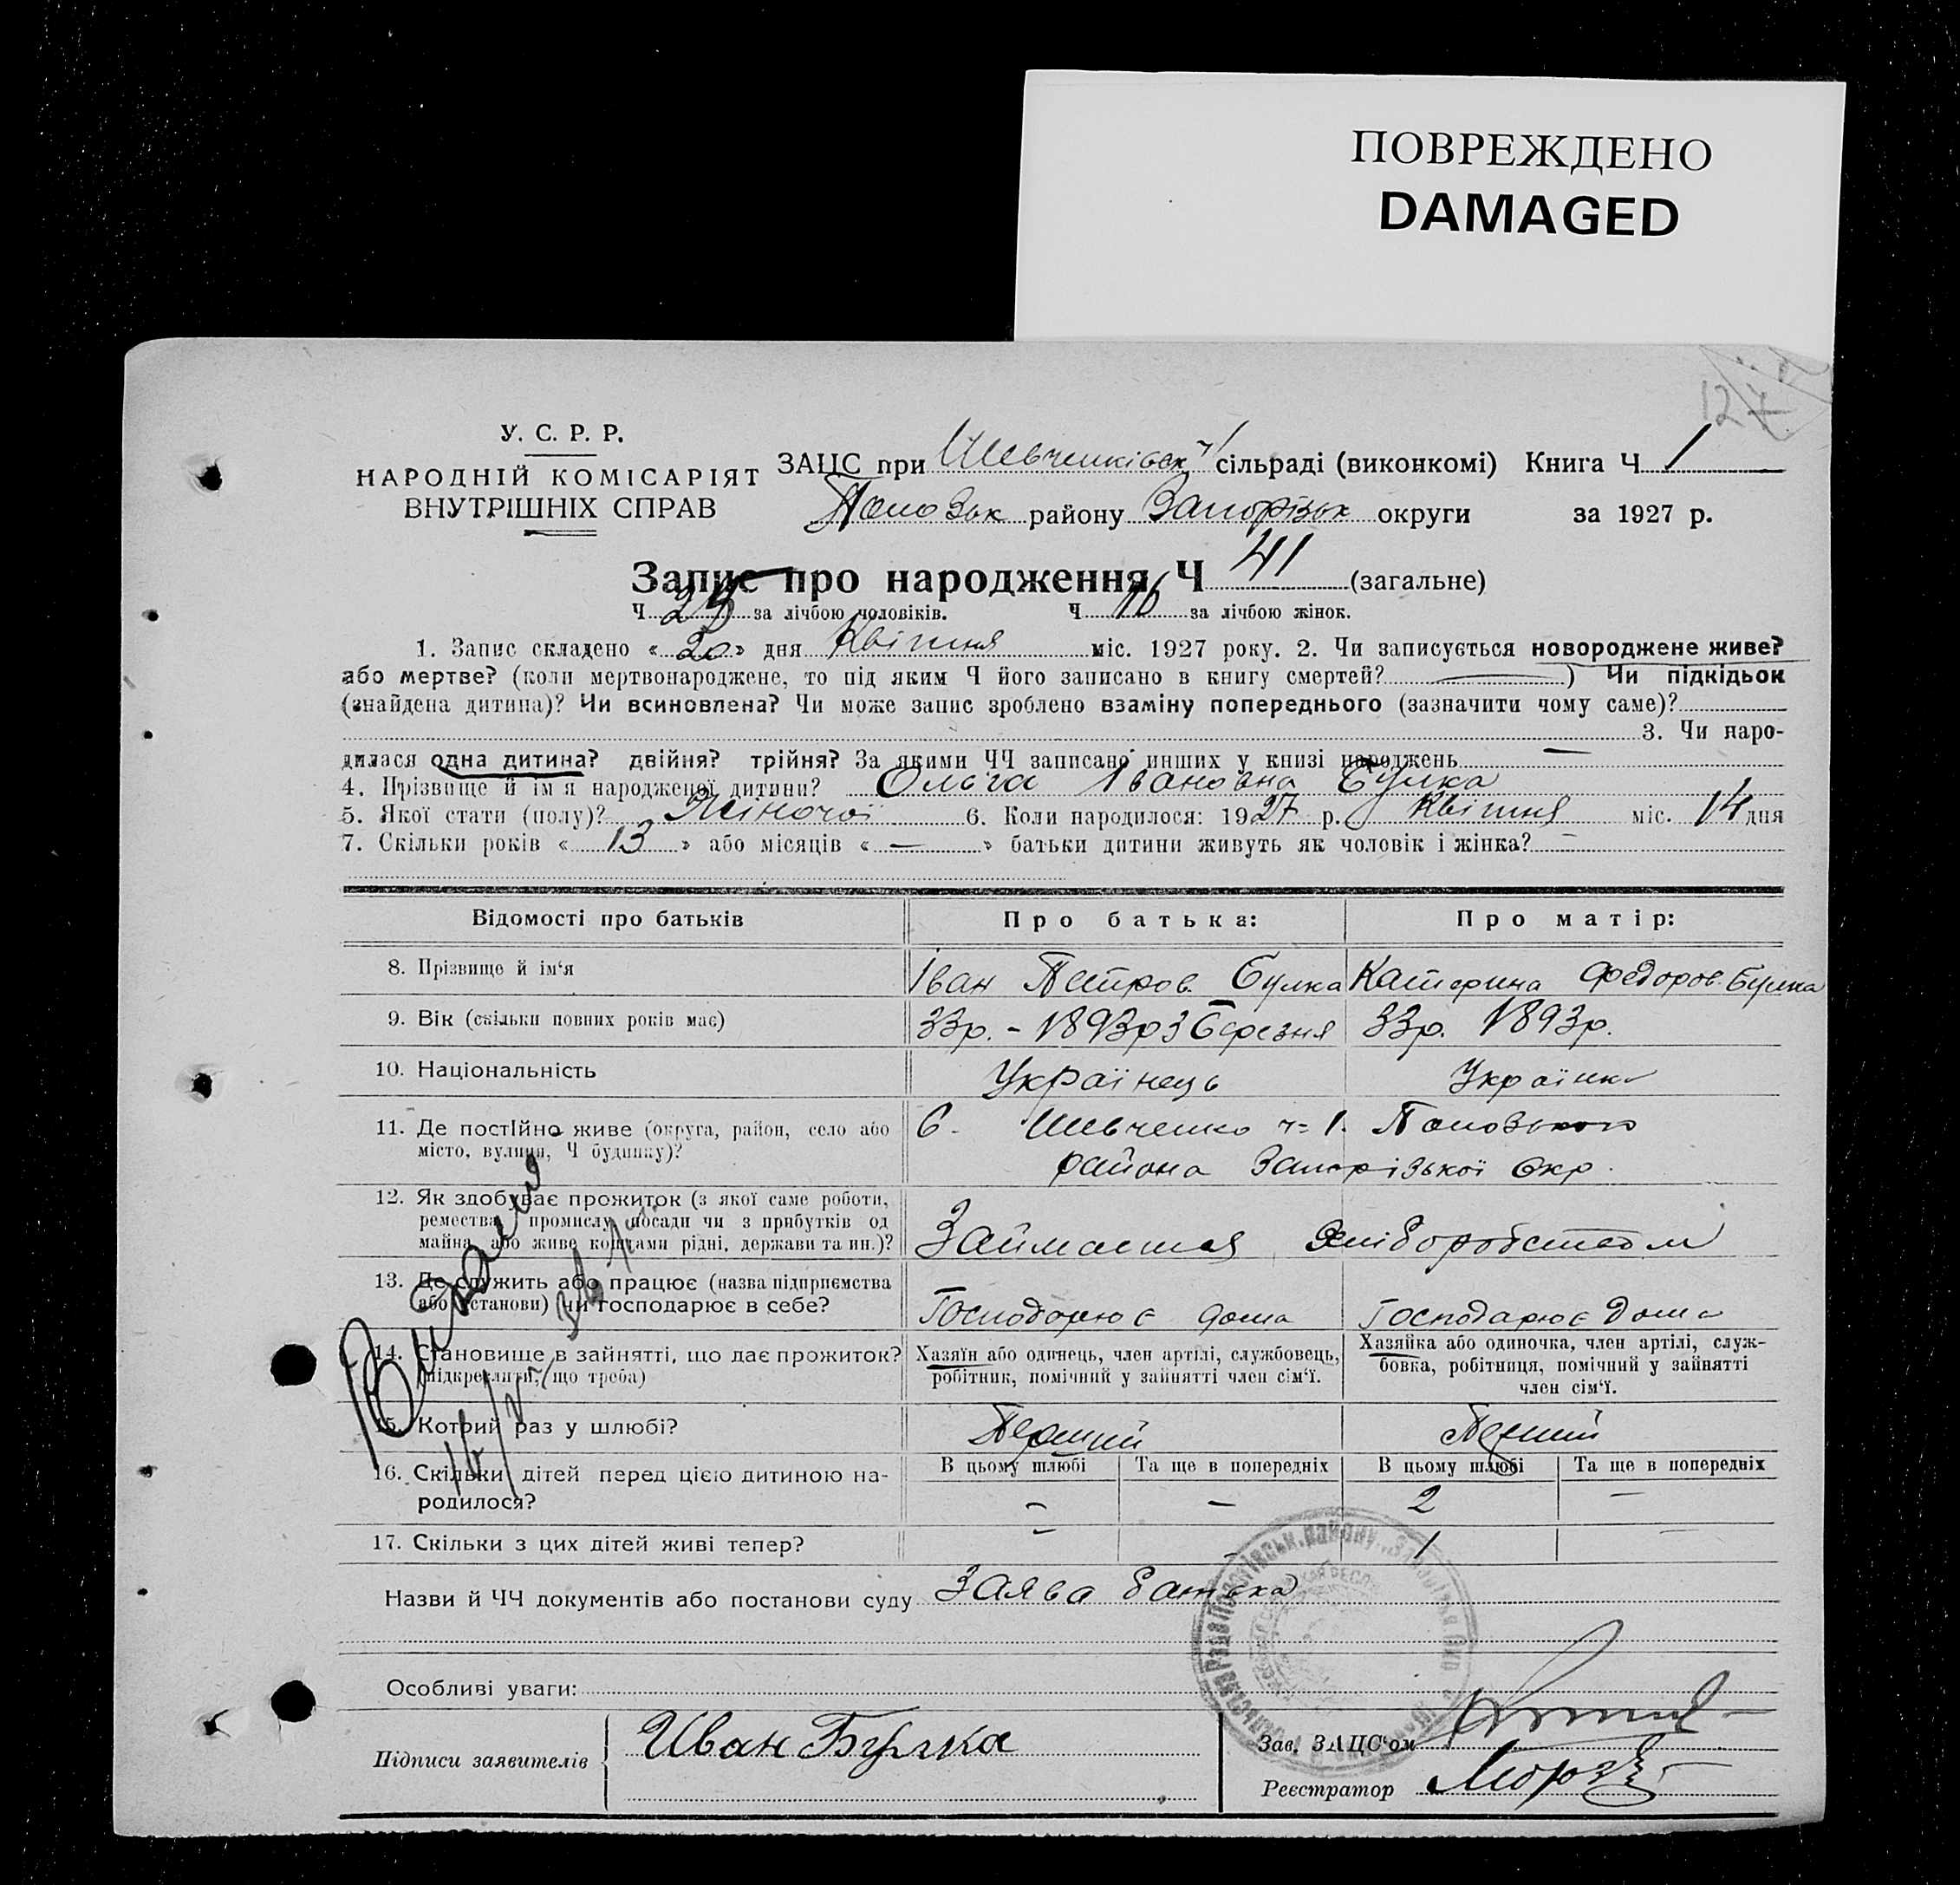 ПОВРЕЖДЕНО
DAMAGED
127
У. С. Р. Р.
НАРОДНІЙ КОМІСАРІЯТ
ВНУТРІШНІХ СПРАВ
ЗАЦС при Шевченківськ ч 1 сільраді (виконкомі) Книга Ч 1
району Запорізьк округи за 1927 р.
Запис про народження Ч 41 (загальне)
Ч 25 за лічбою чоловіків. Ч 16 за лічбою жінок.
1. Запис складено « 20 » дня Квітня міс. 1927 року. 2. Чи записується новороджене живе?
або мертве? (коли мертвонароджене, то під яким Ч його записано в книгу смертей? — ) Чи підкідьок
(знайдена дитина)? Чи всиновлена? Чи може запис зроблено взаміну попереднього (зазначити чому саме)?
3. Чи наро-
дилася одна дитина? двійня? трійня? За якими ЧЧ записано инших у книзі народжень —
4. Прізвище й ім'я народженої дитини? Ольга Івановна Булка
5. Якої стати (полу)? Жіночої 6. Коли народилося: 1927 р. Квітня міс. 14 дня
7. Скільки років « 13 » або місяців « — » батьки дитини живуть як чоловік і жінка? —
Відомості про батьків Про батька: Про матір:
8. Прізвище й ім'я Іван Петров. Булка Катерина Федоров. Булка
9. Вік (скільки повних років має) 33р. - 1893р 3 Березня 33р. 1893р.
10. Національність Українець Українка
11. Де постійно живе (округа, район, село або С. Шевченко ч= 1.
місто, вулиця, Ч будинку)? района Запорізької Окр.
12. Як здобуває прожиток (з якої саме роботи,
ремества, промислу, посади чи з прибутків од
майна, або живе коштами рідні, держави та ин.)? Займається хліборобством
13. Де служить або працює (назва підприємства
або установи) чи господарює в себе? Господарює дома Господарює дома
14. Становище в зайнятті, що дає прожиток? Хазяїн або одинець, член артілі, службовець, Хазяйка або одиночка, член артілі, служ-
(підкреслити, що треба) робітник, помічний у зайнятті член сім'ї. бовка, робітниця, помічний у зайнятті
член сім'ї.
15. Котрий раз у шлюбі? Перший Перший
16. Скільки дітей перед цією дитиною на- В цьому шлюбі Та ще в попередніх В цьому шлюбі Та ще в попередніх
родилося? — — 2 —
17. Скільки з цих дітей живі тепер? — 1 —
Назви й ЧЧ документів або постанови суду Заява батька
Особливі уваги:
Підписи заявителів Иван Булка Зав. ЗАЦС'ом
Реєстратор Мороз